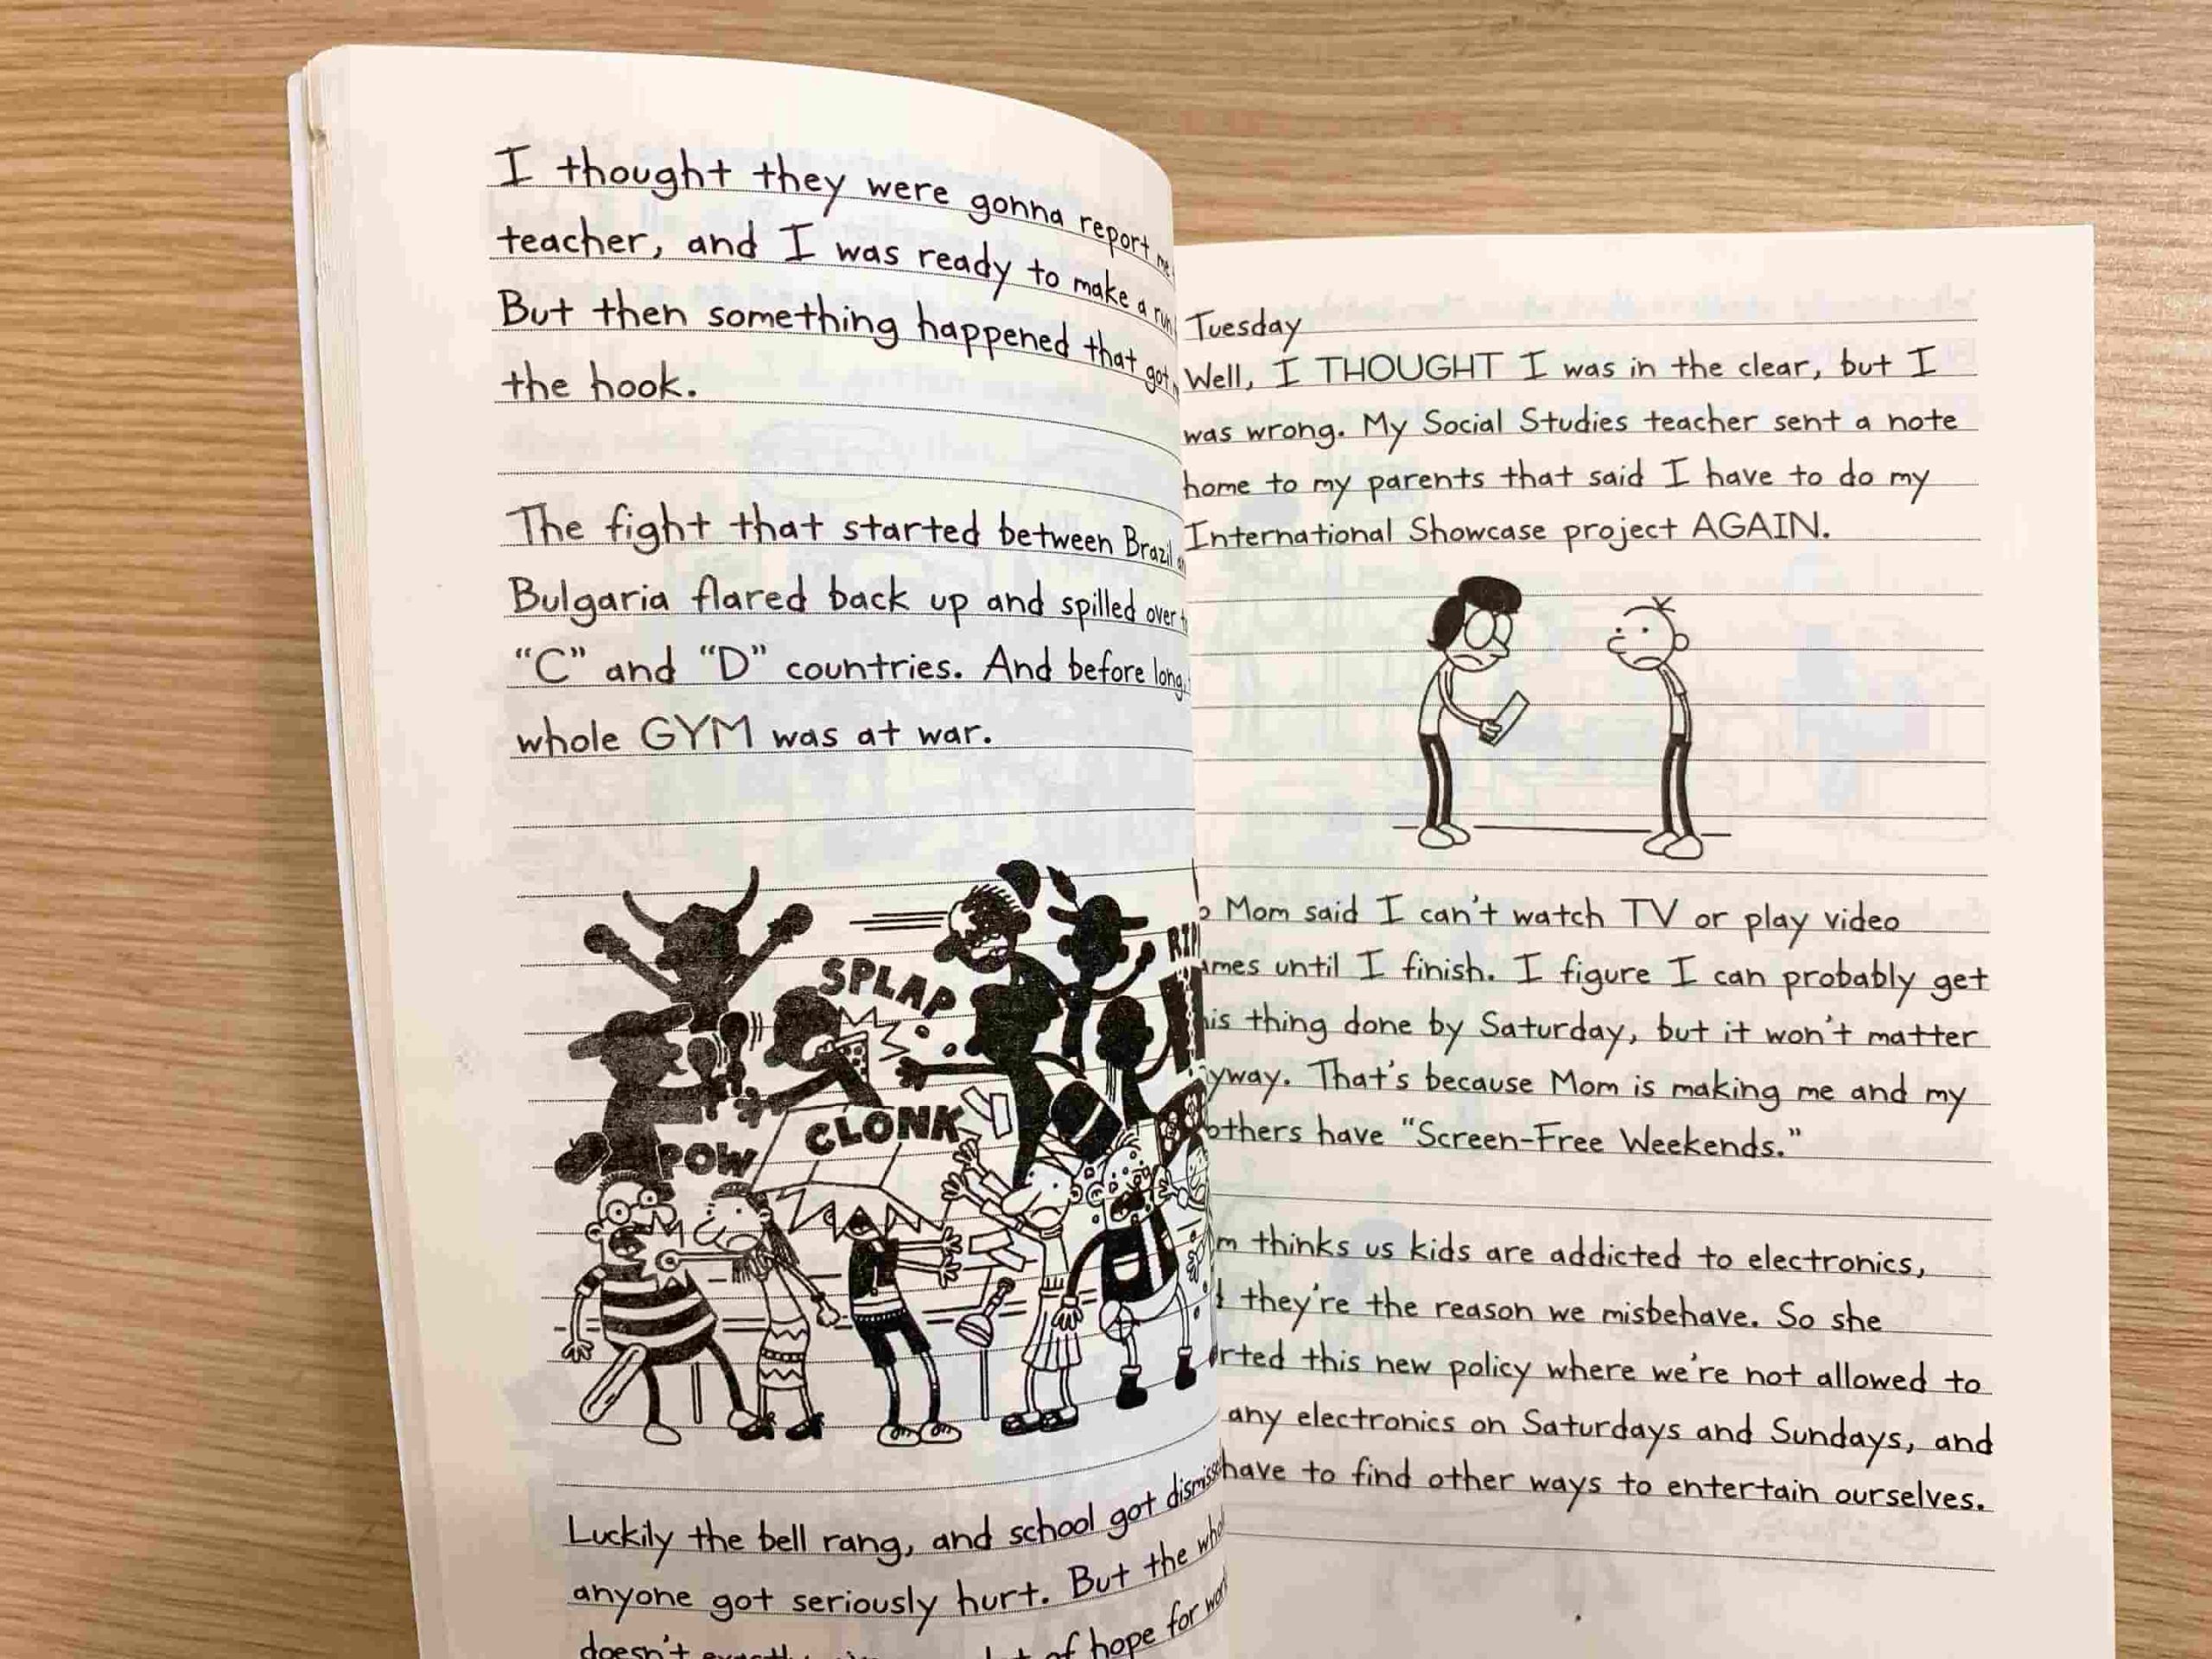 I thought they were gonna report me
teacher, and I was ready to make a run
But then something happened that got
the hook.
The fight that started between Brazil
Bulgaria flared back up and spilled over
“C” and “D” countries. And before long,
whole GYM was at war.
SPLAP
RIP
POW
CLONK
Luckily the bell rang, and school got
anyone got seriously hurt. But the
doesn't of hope for
Tuesday
Well, I THOUGHT I was in the clear, but I
was wrong. My Social Studies teacher sent a note
home to my parents that said I have to do my
International Showcase project AGAIN.
Mom said I can't watch TV or play video
until I finish. I figure I can probably get
thing done by Saturday, but it won't matter
That's because Mom is making me and my
have “Screen-Free Weekends.”
thinks us kids are addicted to electronics,
they're the reason we misbehave. So she
this new policy where we're not allowed to
any electronics on Saturdays and Sundays, and
have to find other ways to entertain ourselves.